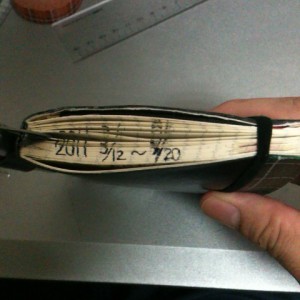 2011 3/12 ~ 4/20